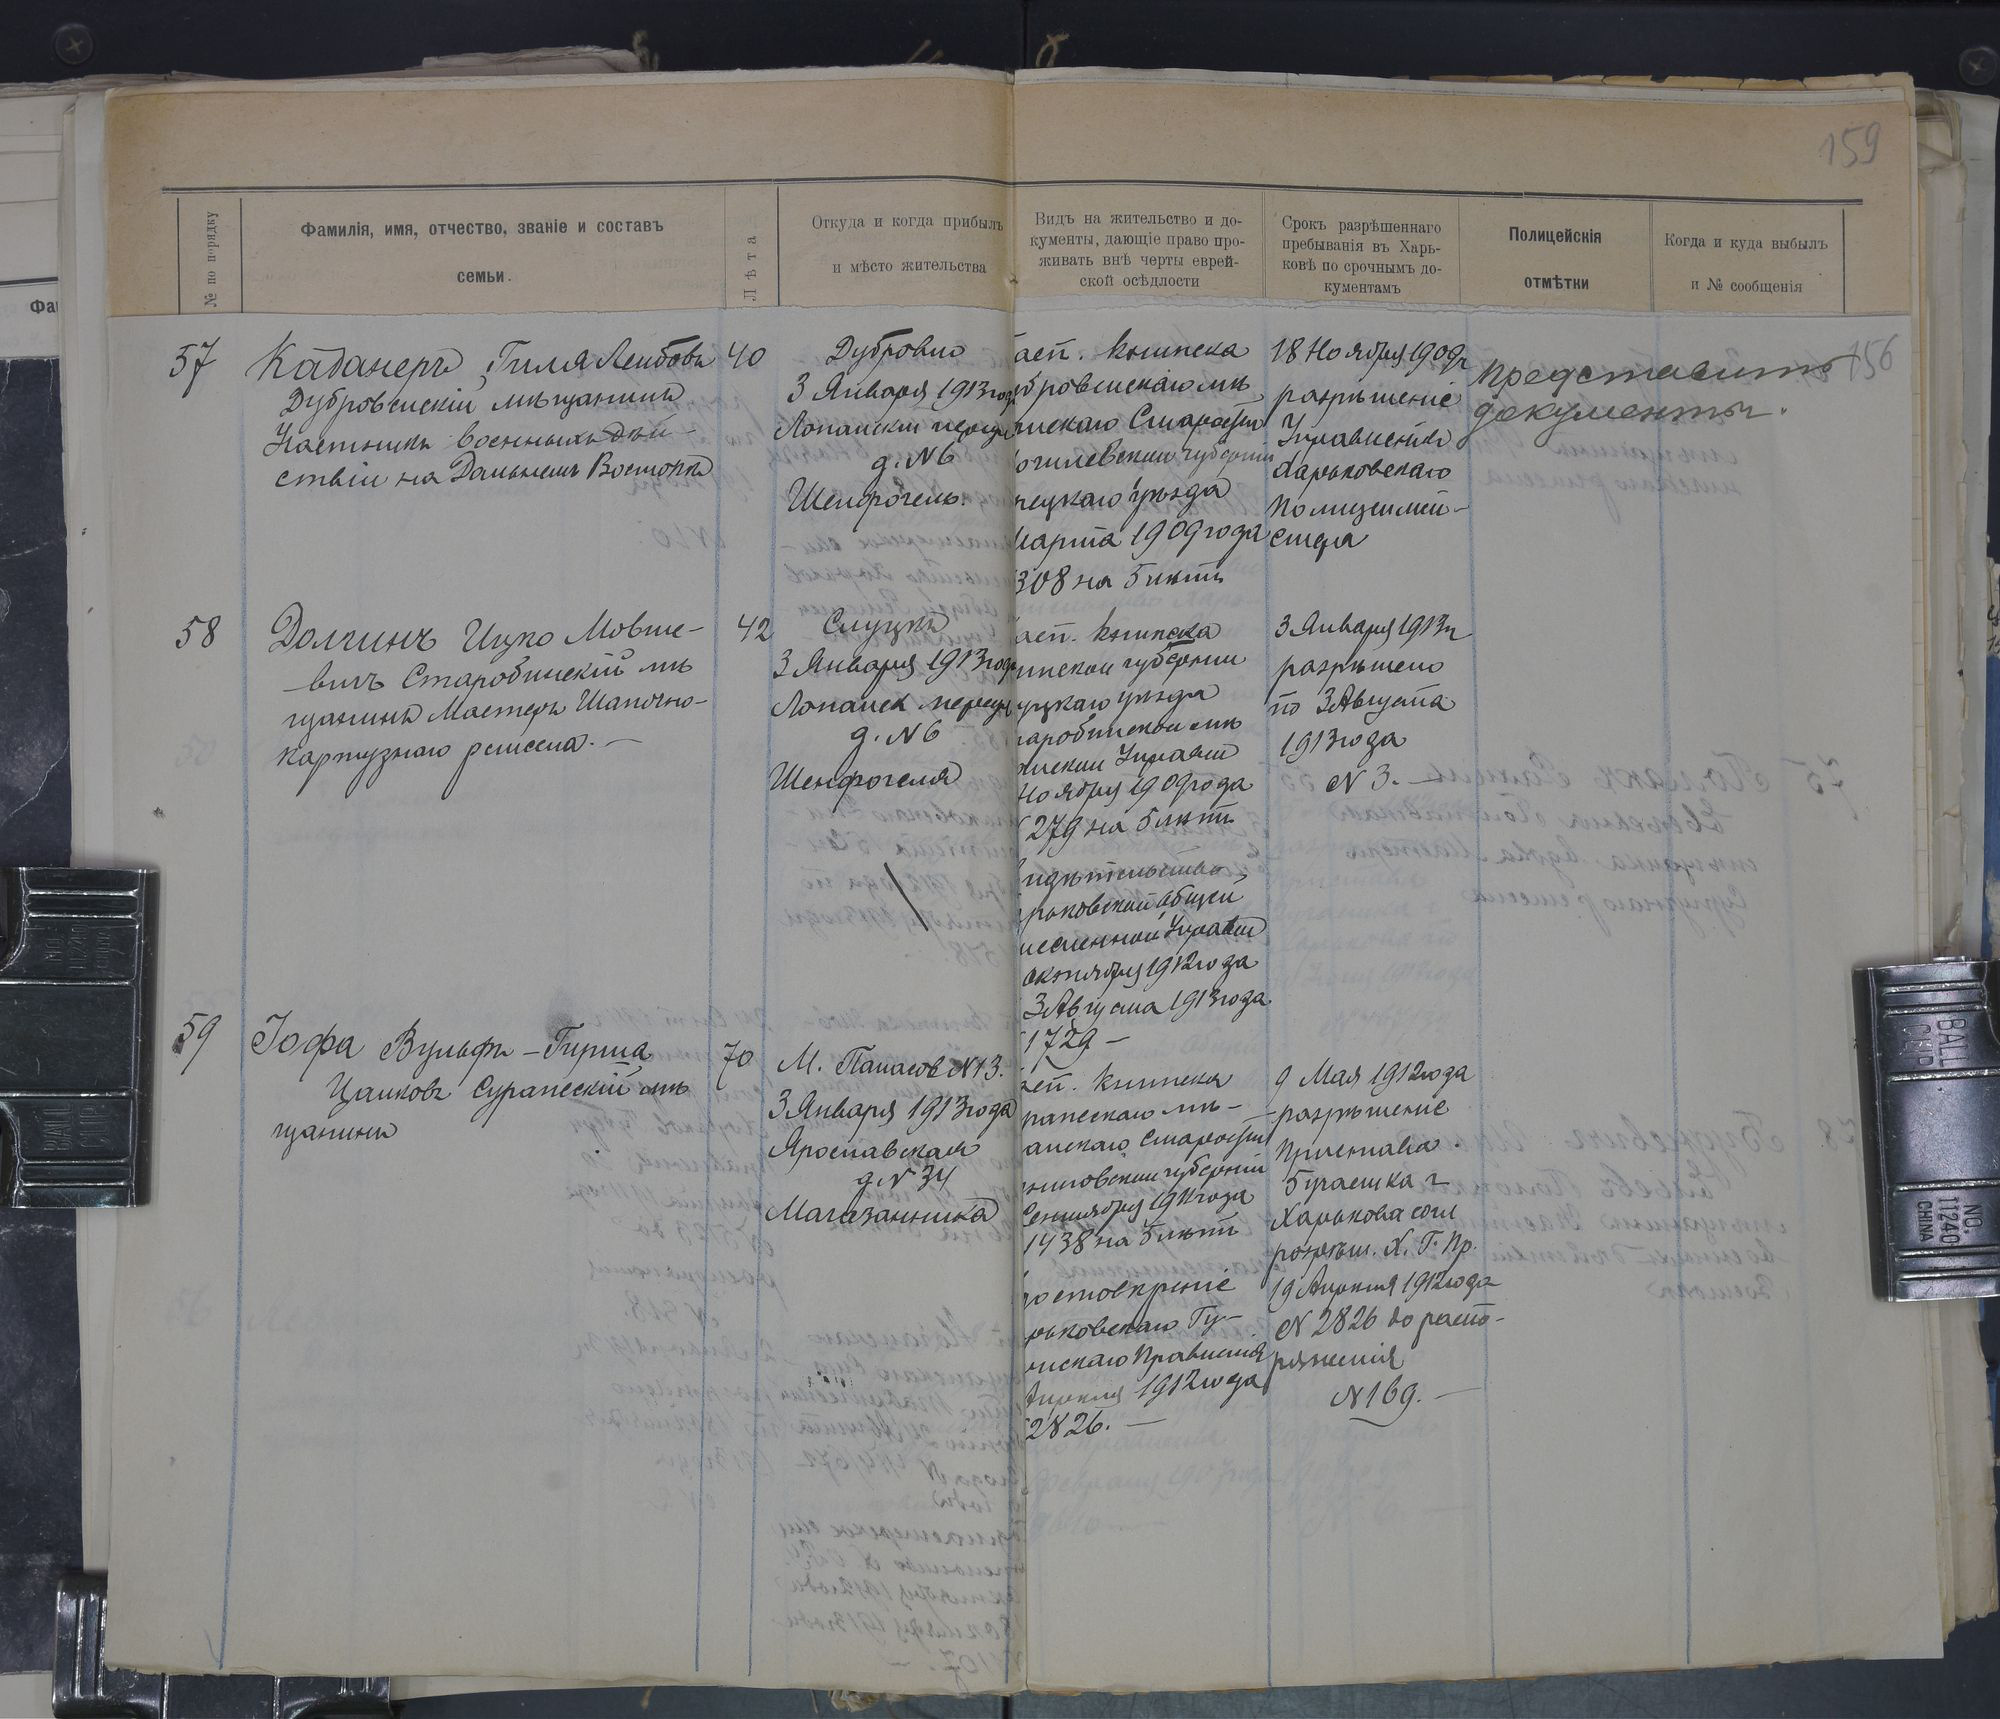 159
№ по порядку
Фамилія, имя, отчество, званіе и составъ
семьи.
Лѣта
Откуда и когда прибылъ
и мѣсто жительства
Видъ на жительство и до-
кументы, дающіе право про-
живать внѣ черты еврей-
ской осѣдлости
Срокъ разрѣшеннаго
пребыванія въ Харь-
ковѣ по срочнымъ до-
кументамъ
Полицейскія
отмѣтки
Когда и куда выбылъ
и № сообщенія
Фа
156
57
Каданеръ Гиля Леибовъ
Дубровенскій мѣщанинъ
Участникъ военныхъ дѣй-
ствій на Дальнемъ Востокѣ
40
Дубровно
3 Января 1913 года
Лопанскій переул
д. № 6
Шенфогель.
асп. книжка
убровенскаго мѣ
нскаго Старосты
огилевской губерніи
рецкаго уѣзда
Марта 1909 года
308 на 5 лѣтъ
18 Ноября 1909 г
разрѣшеніе
Управленія
Харьковскаго
Полицеймей-
стера
Представить
документы.
58
Долгинъ Ицко Мовше-
вичъ Старобинскій мѣ
щанинъ Мастеръ Шапочно-
картузнаго ремесла. —
42
Слуцкъ
3 Января 1913 года
Лопанск переул
д. № 6
Шенфогеля
асп. книжка
инской губерніи
уцкаго уѣзда
таробинской мѣ
анской Управы
Ноября 1909 года
279 на 5 лѣтъ
видѣтельство
рьковской общей
месленной Управы
октября 1912 года
3 Августа 1913 года
1729 —
3 Января 1913 г
разрѣшено
по 3 Августа
1913 года
№ 3. —
59
Іофа Вульфъ-Гирша
Цалковъ Суражскій мѣ
щанинъ
70
М. Панасов № 13.
3 Января 1913 года
Ярославская
д. № 34
Магазанника
асп. книжка
ражскаго мѣ-
анскаго Старосты
рниговской губерніи
Сентября 1911 года
1438 на 5 лѣтъ
достовѣреніе
рьковскаго Гу-
рнскаго Правленія
Апрѣля 1912 года
2826. —
9 Мая 1912 года
разрѣшеніе
Пристава
5 участка г
Харькова согл
разрѣш. Х. Г. Пр.
19 Апрѣля 1912 года
№ 2826 до распо-
ряженія
№ 169. —
BALL
CLIP
NO.
11240
CHINA